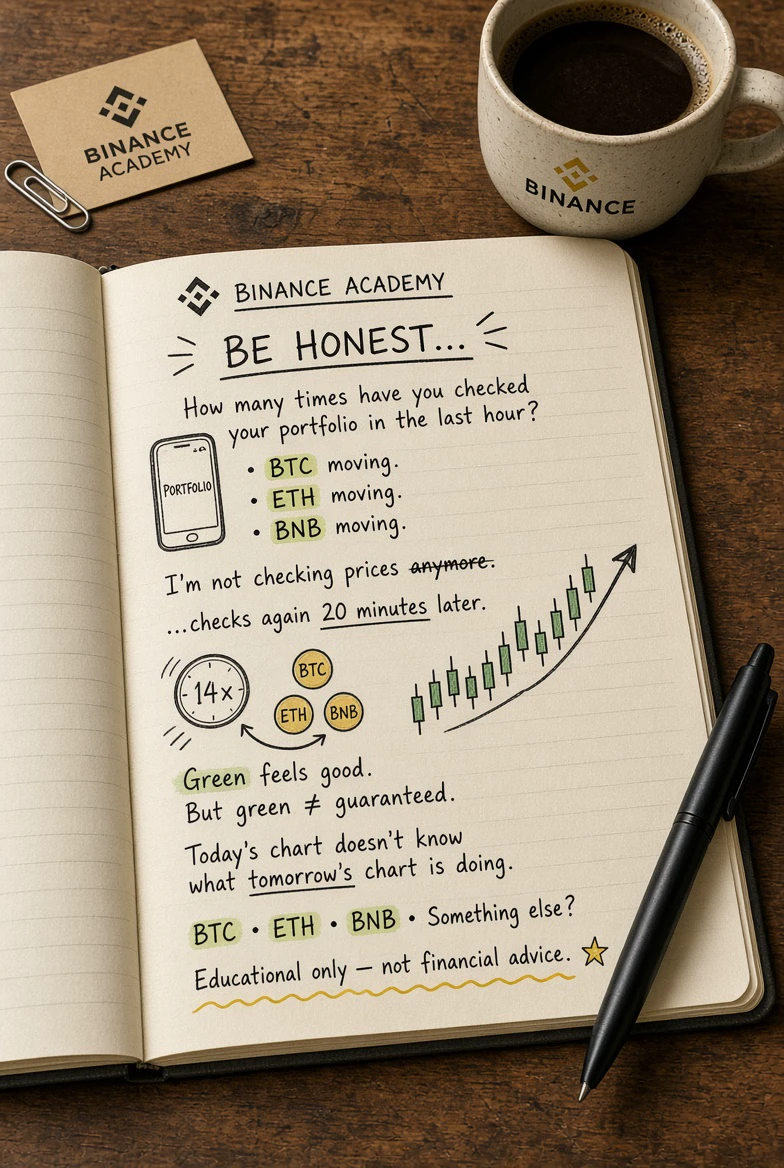 BINANCE
ACADEMY
BINANCE
BINANCE ACADEMY
BE HONEST...
How many times have you checked
your portfolio in the last hour?
PORTFOLIO
• BTC moving.
• ETH moving.
• BNB moving.
I'm not checking prices ~~anymore~~.
...checks again 20 minutes later.
14x
BTC
ETH
BNB
Green feels good.
But green ≠ guaranteed.
Today's chart doesn't know
what tomorrow's chart is doing.
BTC • ETH • BNB • Something else?
Educational only — not financial advice.